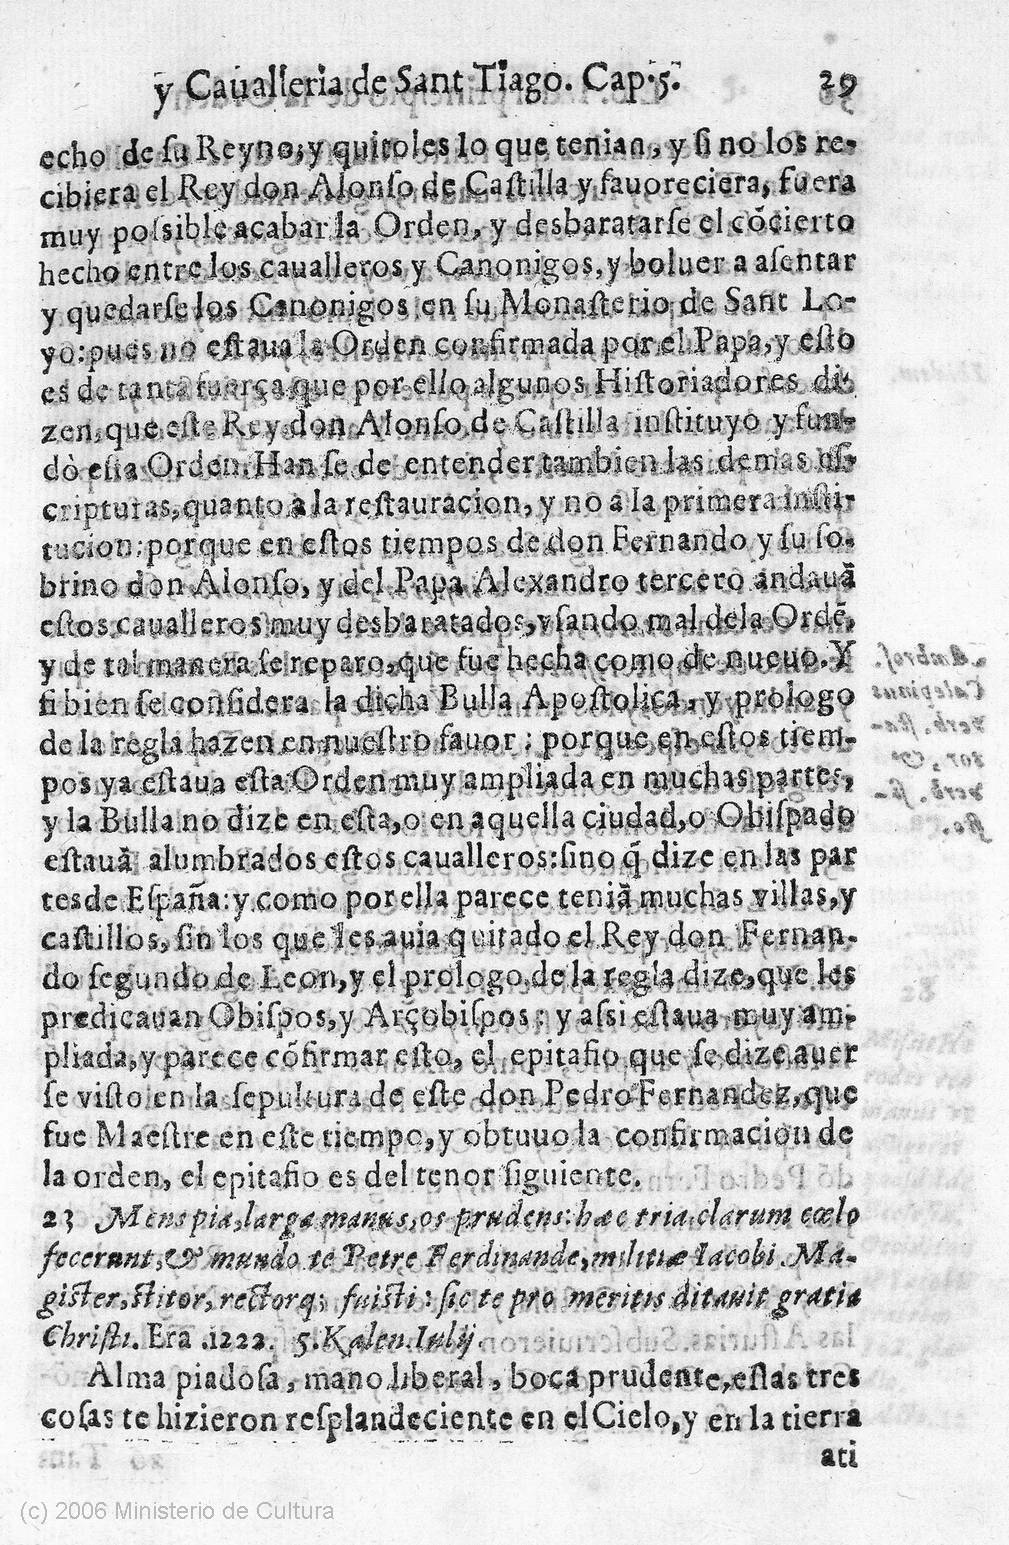 y Cauallería de Sant Tiago. Cap. 5. 29
echo de ſu Reyno, y quitoles lo que tenian, y ſi no los re-
cibiera el Rey don Alonſo de Caſtilla y fauoreciera, fuera
muy poſsible acabar la Orden, y desbaratarſe el cõcierto
hecho entre los caualleros y Canonigos, y boluer a aſentar
y quedarſe los Canonigos en ſu Monaſterio de Sant Lo-
yo: pues no eſtaua la Orden confirmada por el Papa, y eſto
es de tanta fuerça que por ello algunos Hiſtoriadores di-
zen, que eſte Rey don Alonſo de Caſtilla inſtituyo y fun-
dò eſta Orden. Han ſe de entender tambien las demas eſ-
cripturas, quanto a la reſtauracion, y no a la primera inſti-
tucion: porque en eſtos tiempos de don Fernando y ſu ſo-
brino don Alonſo, y del Papa Alexandro tercero andauã
eſtos caualleros muy desbaratados, vſando mal dela Ordẽ,
y de tal manera ſe reparo, que fue hecha como de nueuo. Y
ſi bien ſe conſidera la dicha Bulla Apoſtolica, y prologo
de la regla hazen en nueſtro fauor: porque en eſtos tiem-
pos ya eſtaua eſta Orden muy ampliada en muchas partes,
y la Bulla no dize en eſta, o en aquella ciudad, o Obiſpado
eſtauã alumbrados eſtos caualleros: ſino q̃ dize en las par
tes de Eſpaña: y como por ella parece teniã muchas villas, y
caſtillos, ſin los que les auia quitado el Rey don Fernan-
do ſegundo de Leon, y el prologo de la regla dize, que les
predicauan Obiſpos, y Arçobiſpos: y aſsi eſtaua muy am-
pliada, y parece cõfirmar eſto, el epitafio que ſe dize auer
ſe viſto en la ſepultura de eſte don Pedro Fernandez, que
fue Maeſtre en eſte tiempo, y obtuuo la confirmacion de
la orden, el epitafio es del tenor ſiguiente.
23 Mens pia, larga manus, os prudens: hæc tria clarum cœlo
fecerunt, & mundo te Petre Ferdinande, militiæ Iacobi. Ma-
giſter, ſtitor, rectorq; fuiſti: ſic te pro meritis ditauit gratia
Chriſti. Era .1222. 5. Kalen. Iulij.
Alma piadoſa, mano liberal, boca prudente, eſtas tres
coſas te hizieron reſplandeciente en el Cielo, y en la tierra
ati
(c) 2006 Ministerio de Cultura